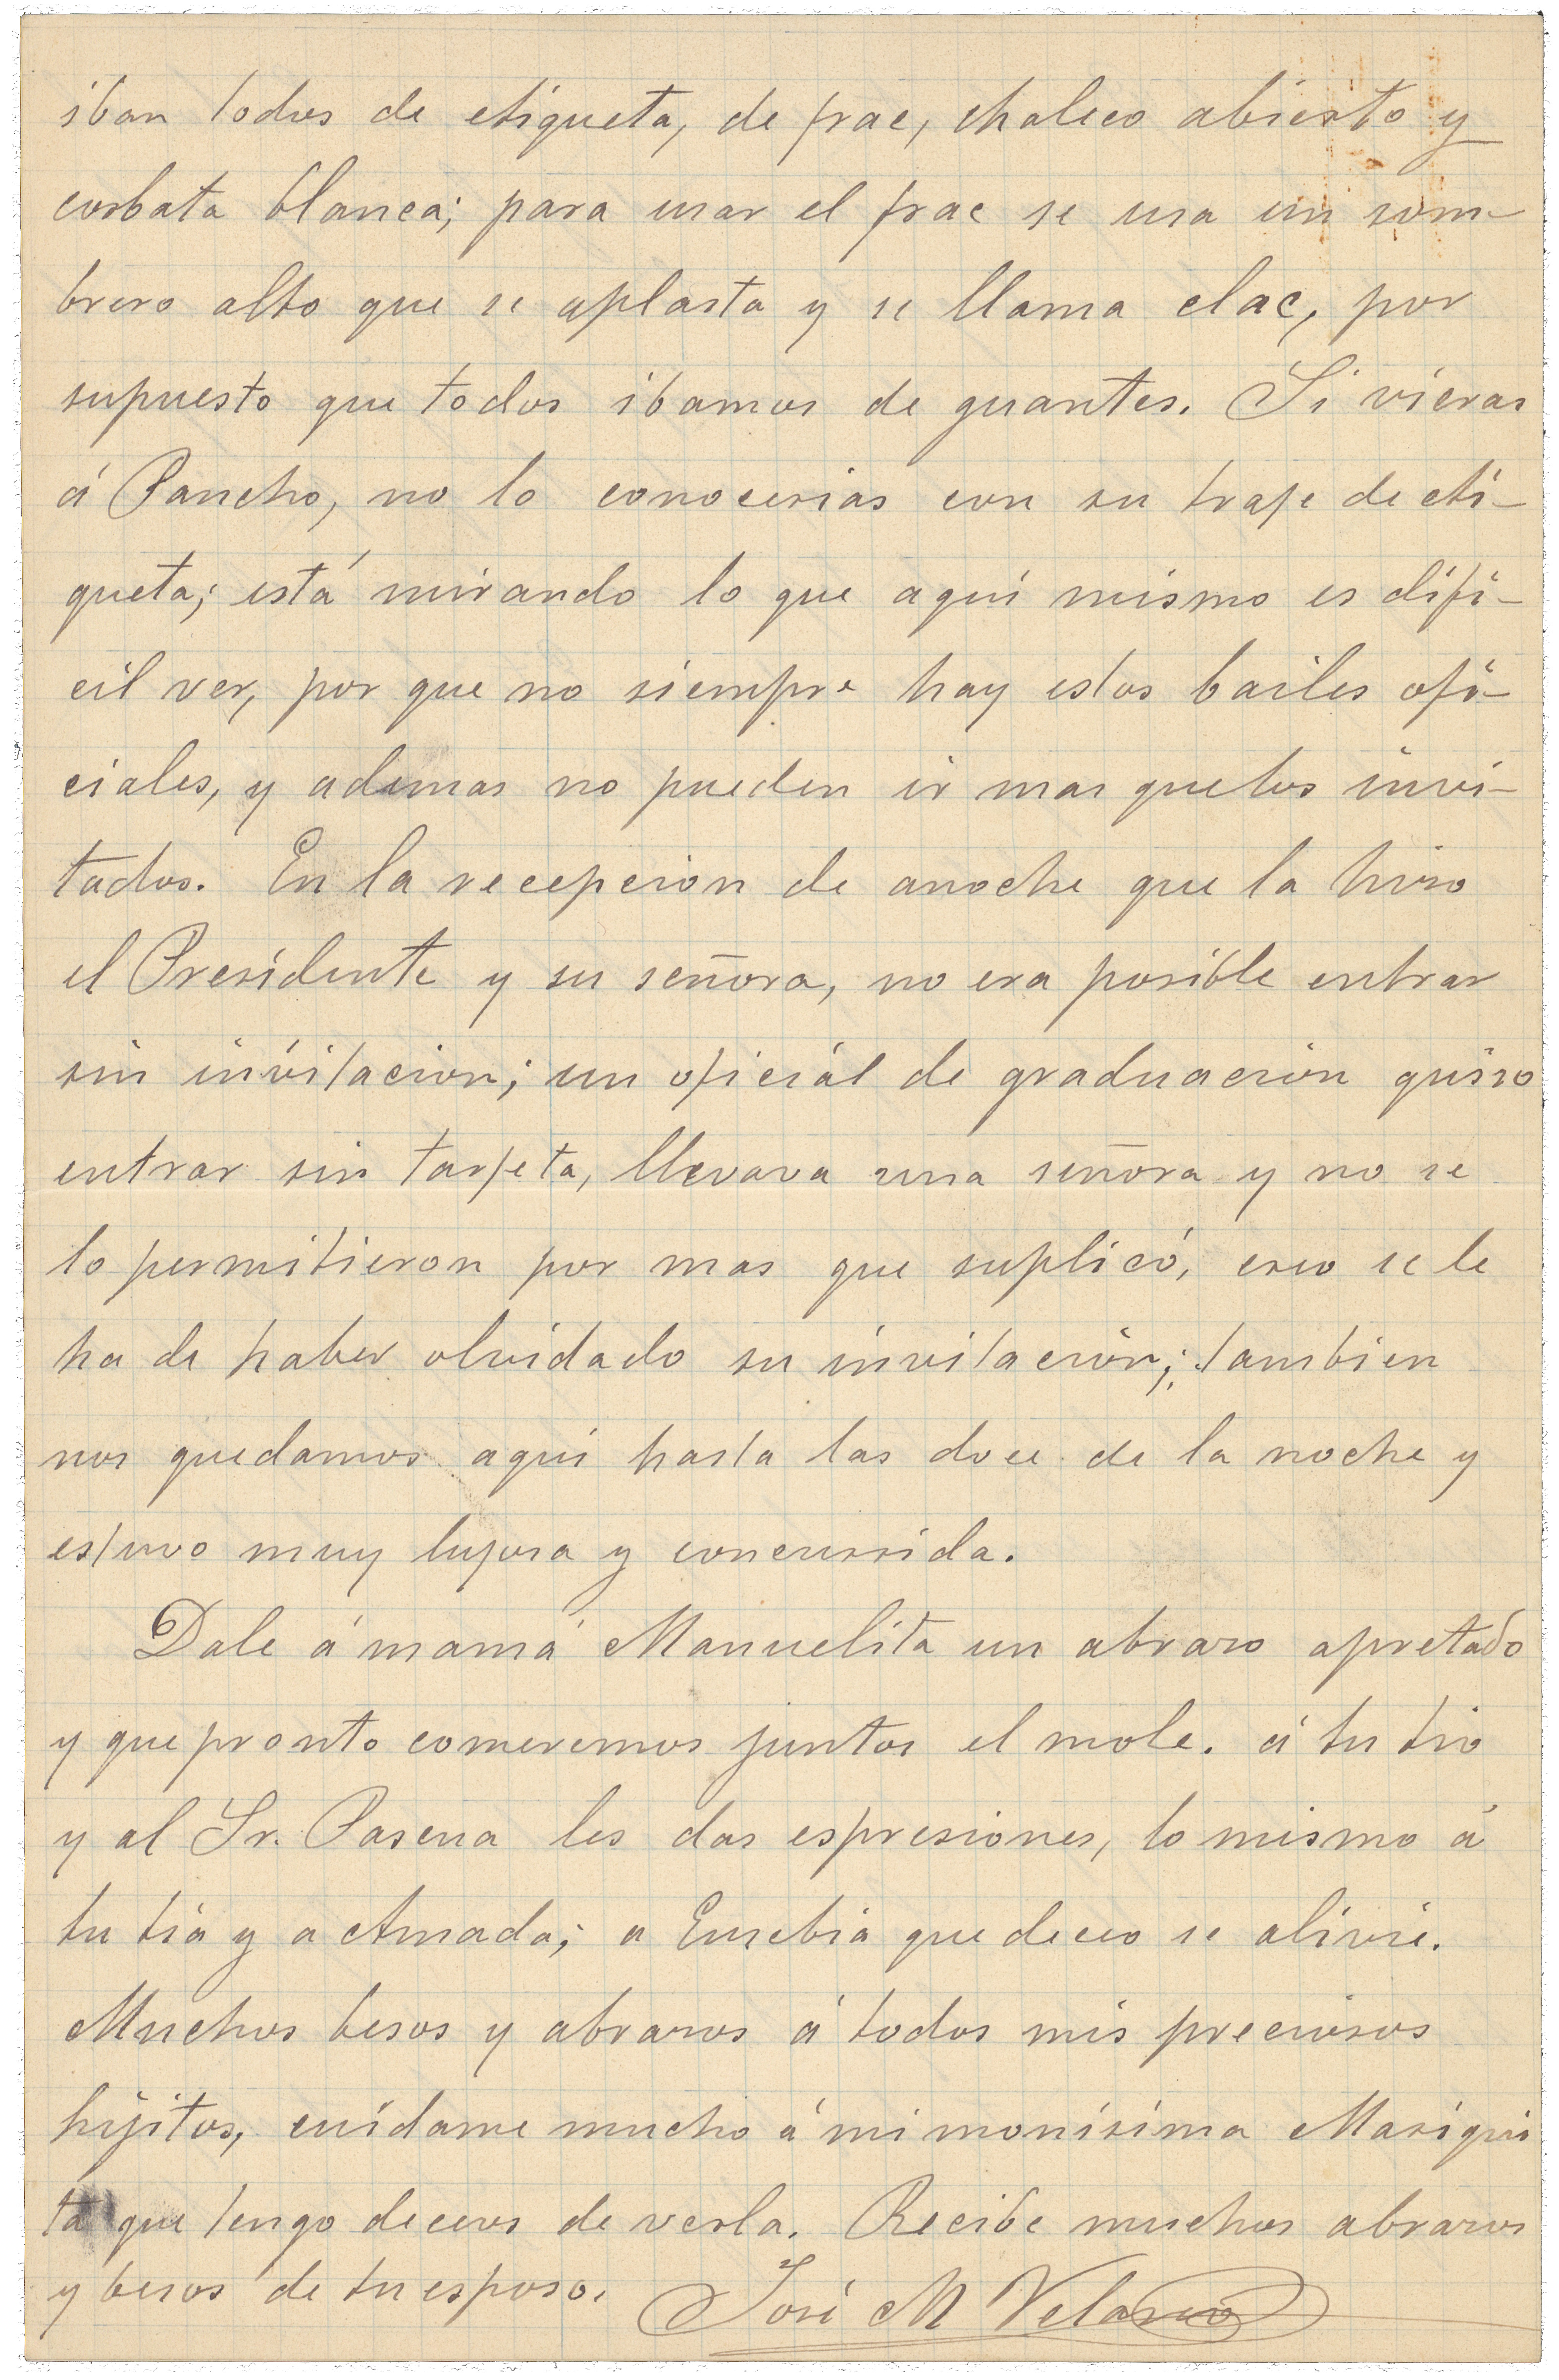 iban todos de etiqueta, de frac, chaleco abierto y
corbata blanca; para usar el frac se usa un som-
brero alto que se aplasta y se llama clac, por
supuesto que todos ibamos de guantes. Si vieras
á Pancho, no lo conocerias con su traje de eti-
queta; está mirando lo que aquí mismo es difi-
cil ver, por que no siempre hay estos bailes ofi-
ciales, y ademas no pueden ir mas que los invi-
tados. En la recepcion de anoche que la hizo
el Presidente y su señora, no era posible entrar
sin invitacion; un oficial de graduacion quiso
entrar sin tarjeta, llevava una señora y no se
lo permitieron por mas que suplicó, creo se le
ha de haber olvidado su invitacion; tambien
nos quedamos aqui hasta las doce de la noche y
estuvo muy lujosa y concurrida.
Dale á mamá Manuelita un abrazo apretado
y que pronto comeremos juntos el mole. á tu tio
y al Sr. Pasena les das espresiones, lo mismo á
tu tia y a Amada; a Eusebia que deceo se alivie.
Muchos besos y abrazos á todos mis preciosos
hijitos, cuidame mucho á mi monísima Mariqui
ta que tengo deceos de verla. Recibe muchos abrazos
y besos de tu esposo. José M Velasco